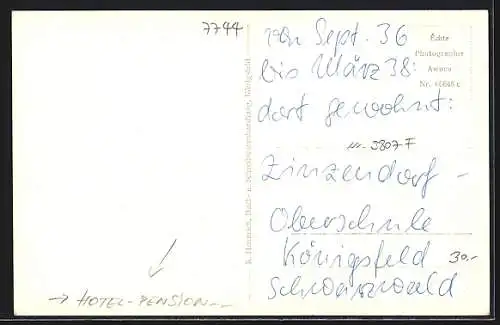 7744
von Sept. 36
bis März 38:
dort gewohnt:
3807 F
Zinzendorf-
Oberschule
Königsfeld
30.-
Schwarzwald
→ HOTEL-PENSION
Echte
Photographie
Nr.
Buch- u. Schreibwarenhandlung, Königsfeld